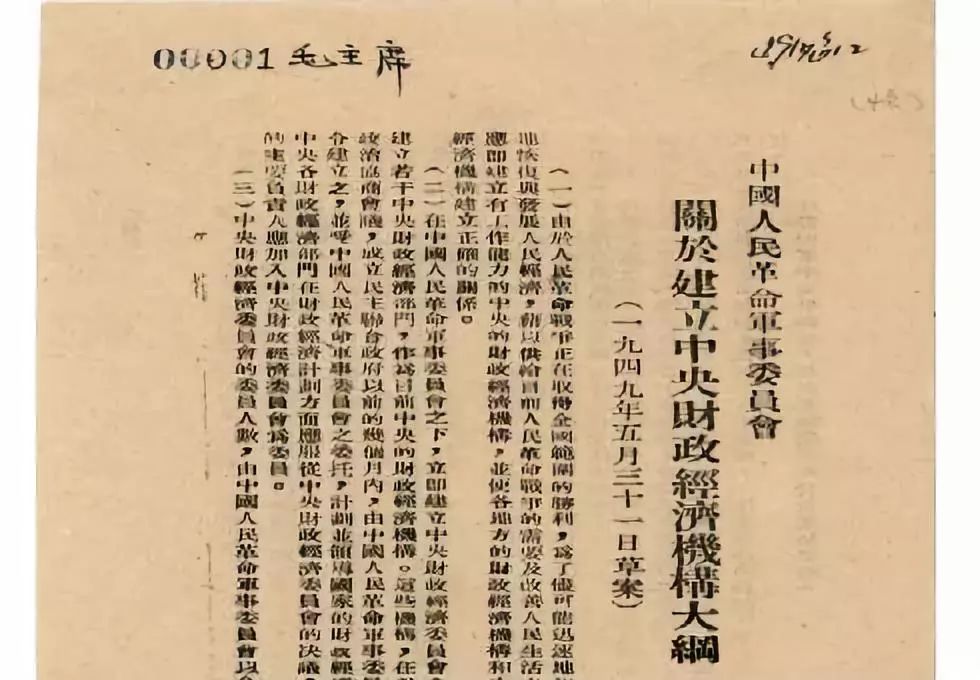 00001 毛主席
中國人民革命軍事委員會
關於建立中央財政經濟機構大綱
（一九四九年五月三十一日草案）
（一）由於人民革命戰爭正在取得全國範圍的勝利，爲了儘可能迅速地
地恢復與發展人民經濟，藉以供給目前人民革命戰爭的需要及改善人民生活
應即建立有工作能力的中央的財政經濟機構，並使各地方的財政經濟機構和
經濟機構建立正確的關係。
（二）在中國人民革命軍事委員會之下，立即建立中央財政經濟委員會
建立若干中央財政經濟部門，作爲目前中央的財政經濟機構。這些機構，在
政治協商會議，成立民主聯合政府以前的幾個月內，由中國人民革命軍事委
令建立之，並受中國人民革命軍事委員會之委托，計劃並領導國家的財政經
中央各財政經濟部門在財政經濟計劃方面應服從中央財政經濟委員會的決議
的主要負責人應加入中央財政經濟委員會爲委員。
（三）中央財政經濟委員會的委員人數，由中國人民革命軍事委員會以